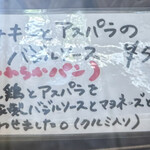 チキンとアスパラの
バジルソース ¥5
わらかパン)
鶏とアスパラを
製バジルソースとマヌネーズと
わせました。(クルミ入り)